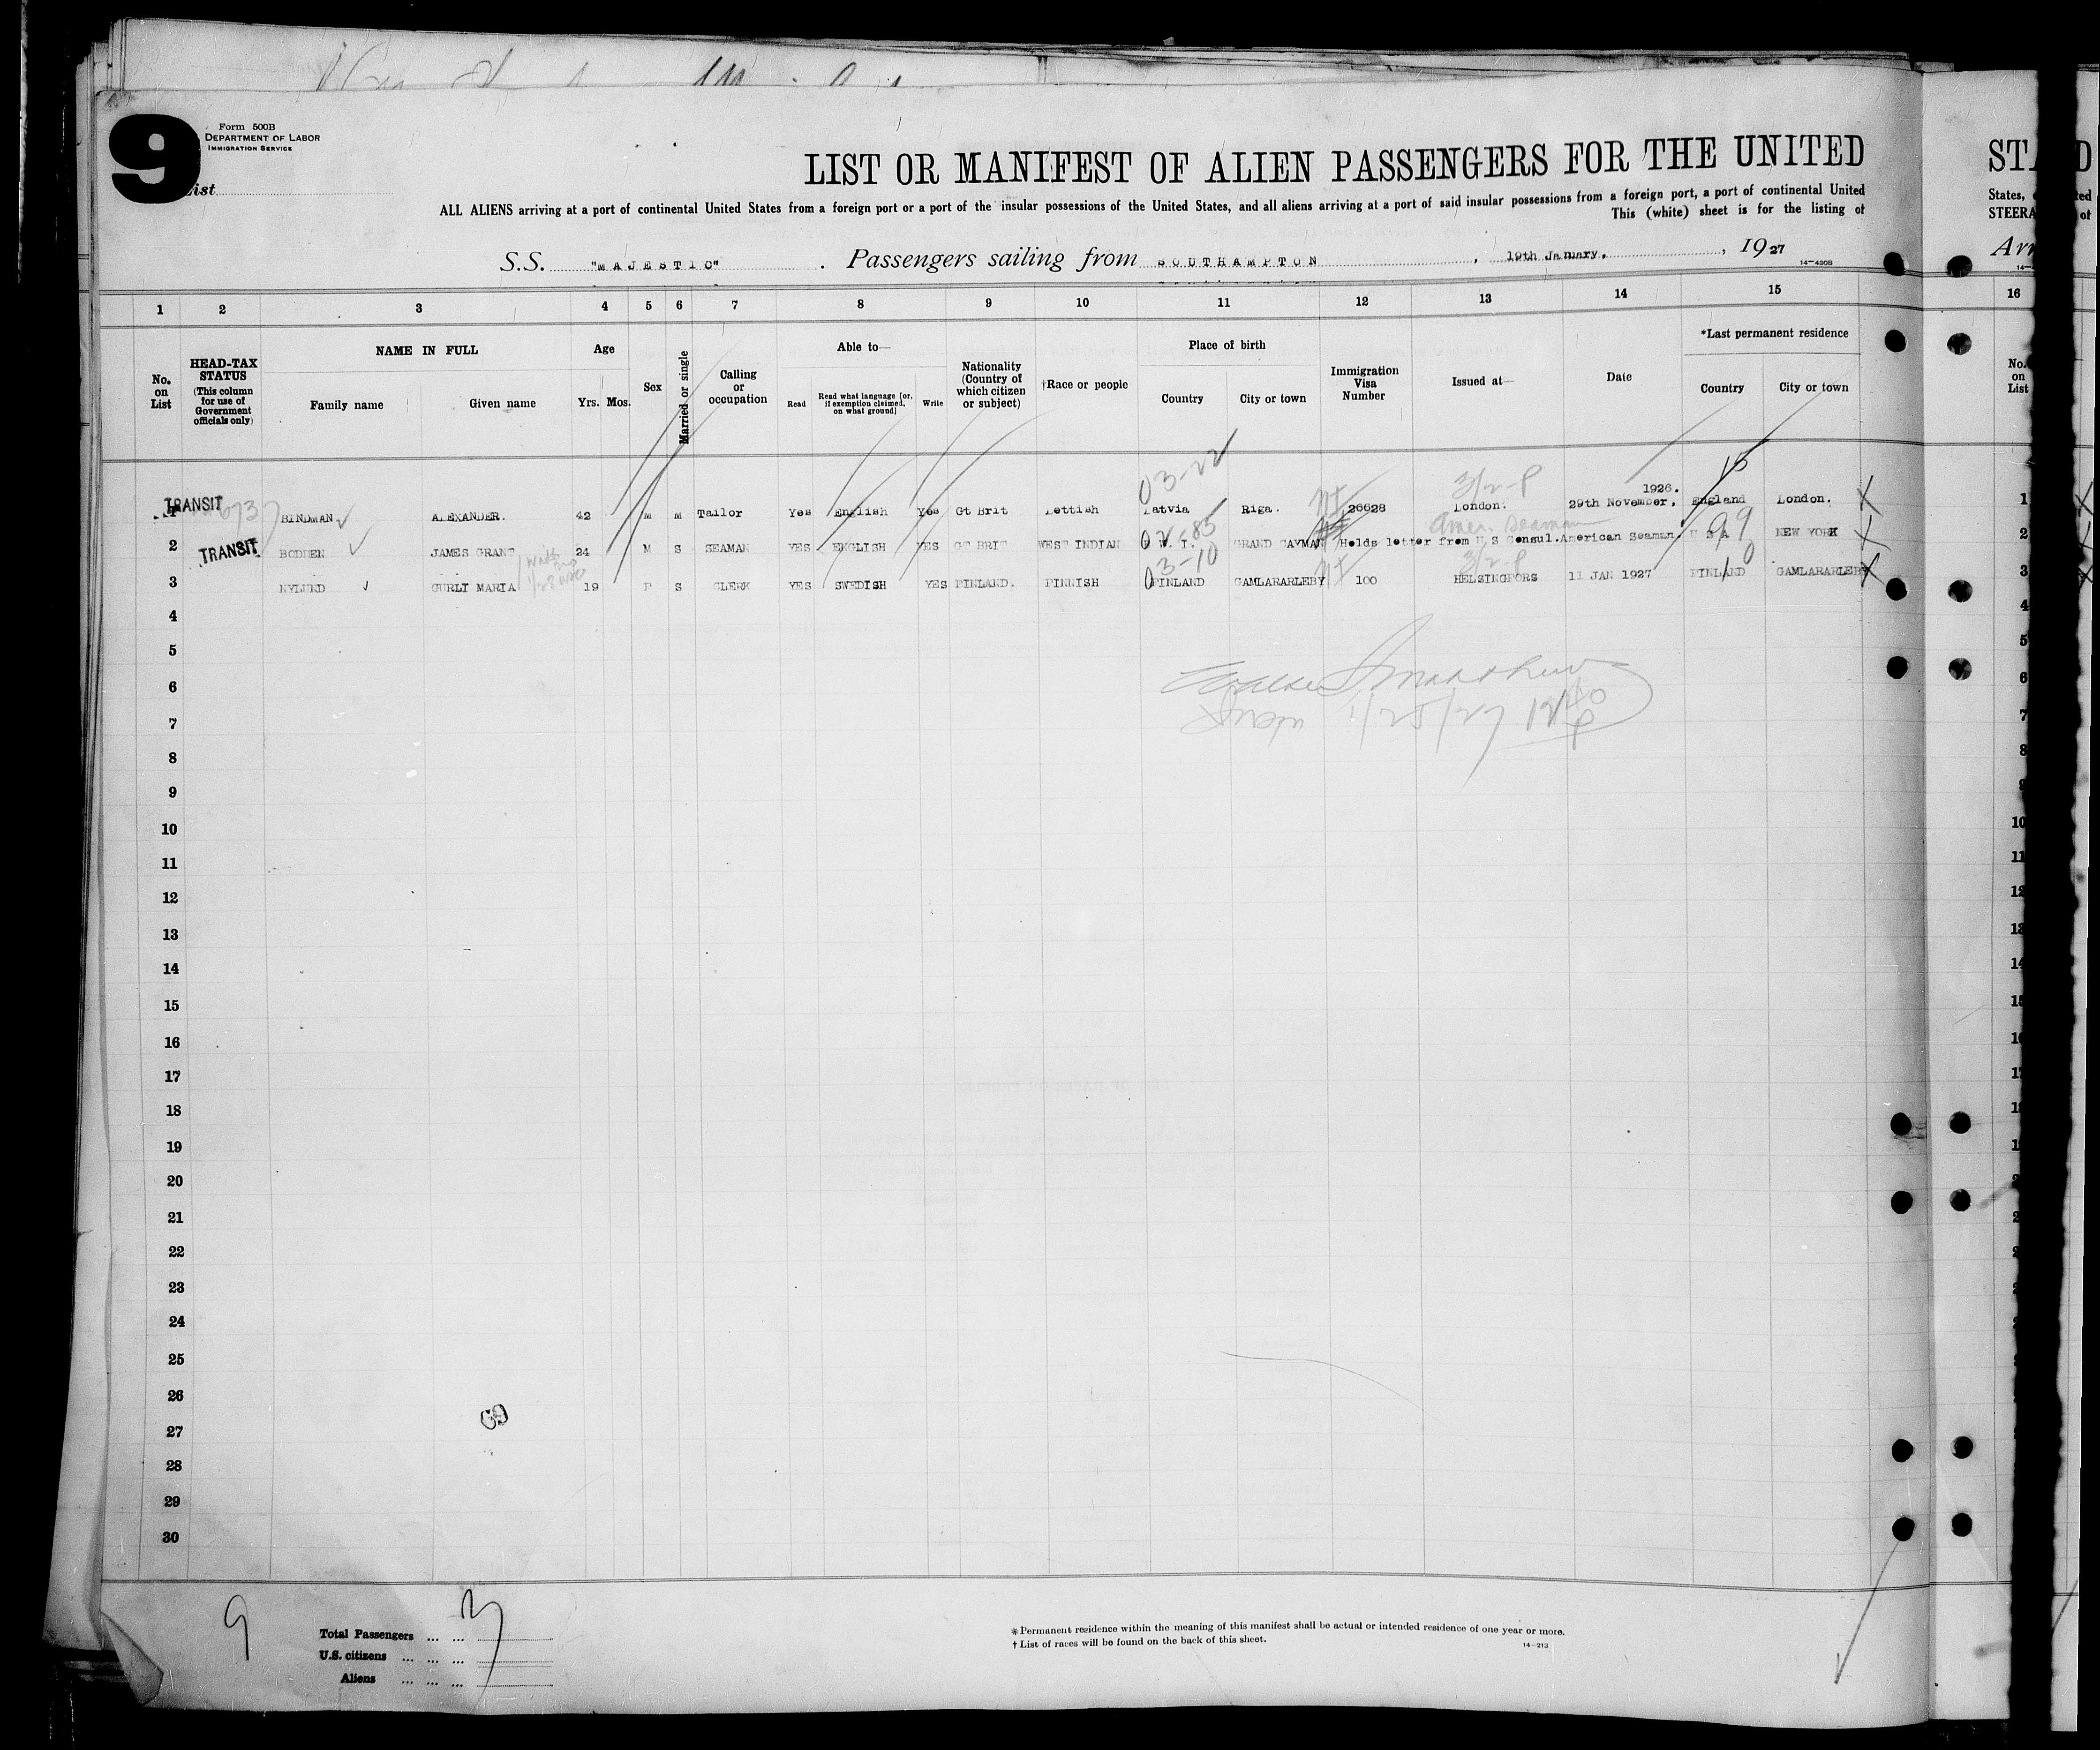 9
Form 500B
DEPARTMENT OF LABOR
IMMIGRATION SERVICE
List
LIST OR MANIFEST OF ALIEN PASSENGERS FOR THE UNITED
ALL ALIENS arriving at a port of continental United States from a foreign port or a port of the insular possessions of the United States, and all aliens arriving at a port of said insular possessions from a foreign port, a port of continental United
This (white) sheet is for the listing of
S.S. "MAJESTIC". Passengers sailing from SOUTHAMPTON, 19th January, 1927
14-430B
1 2 3 4 5 6 7 8 9 10 11 12 13 14 15
No. on List
HEAD-TAX STATUS (This column for use of Government officials only)
NAME IN FULL
Family name Given name
Age
Yrs. Mos.
Sex
Married or single
Calling or occupation
Able to—
Read Read what language [or, if exemption claimed, on what ground] Write
Nationality (Country of which citizen or subject)
†Race or people
Place of birth
Country City or town
Immigration Visa Number
Issued at—
Date
*Last permanent residence
Country City or town
03-22 3/2-P 1926. 15
1 TRANSIT BINDMAN ALEXANDER. 42 M M Tailor Yes English Yes Gt Brit Lettish Latvia Riga. 26628 London. 29th November, England London. X
Amer. Seaman
2 TRANSIT BODDEN JAMES GRANT 24 M S SEAMAN YES ENGLISH YES GT BRIT WEST INDIAN B W. I. GRAND CAYMAN Holds letter from U S Consul. American Seaman. U S A 99 NEW YORK X
03-10 3/2-P 10
3 NYLUND GURLI MARIA 19 F S CLERK YES SWEDISH YES FINLAND. FINNISH FINLAND GAMLARARLEBY 100 HELSINGFORS 11 JAN 1927 FINLAND GAMLARARLEBY X
4
5
6
7
1/25/27
8
9
10
11
12
13
14
15
16
17
18
19
20
21
22
23
24
25
26
27
28
29
30
9
Total Passengers ... ... 3
U.S. citizens ... ... ...
Aliens ... ... ...
* Permanent residence within the meaning of this manifest shall be actual or intended residence of one year or more.
† List of races will be found on the back of this sheet.
14-213
States,
STEERA
16
No. on List
1
2
3
4
5
6
7
8
9
10
11
12